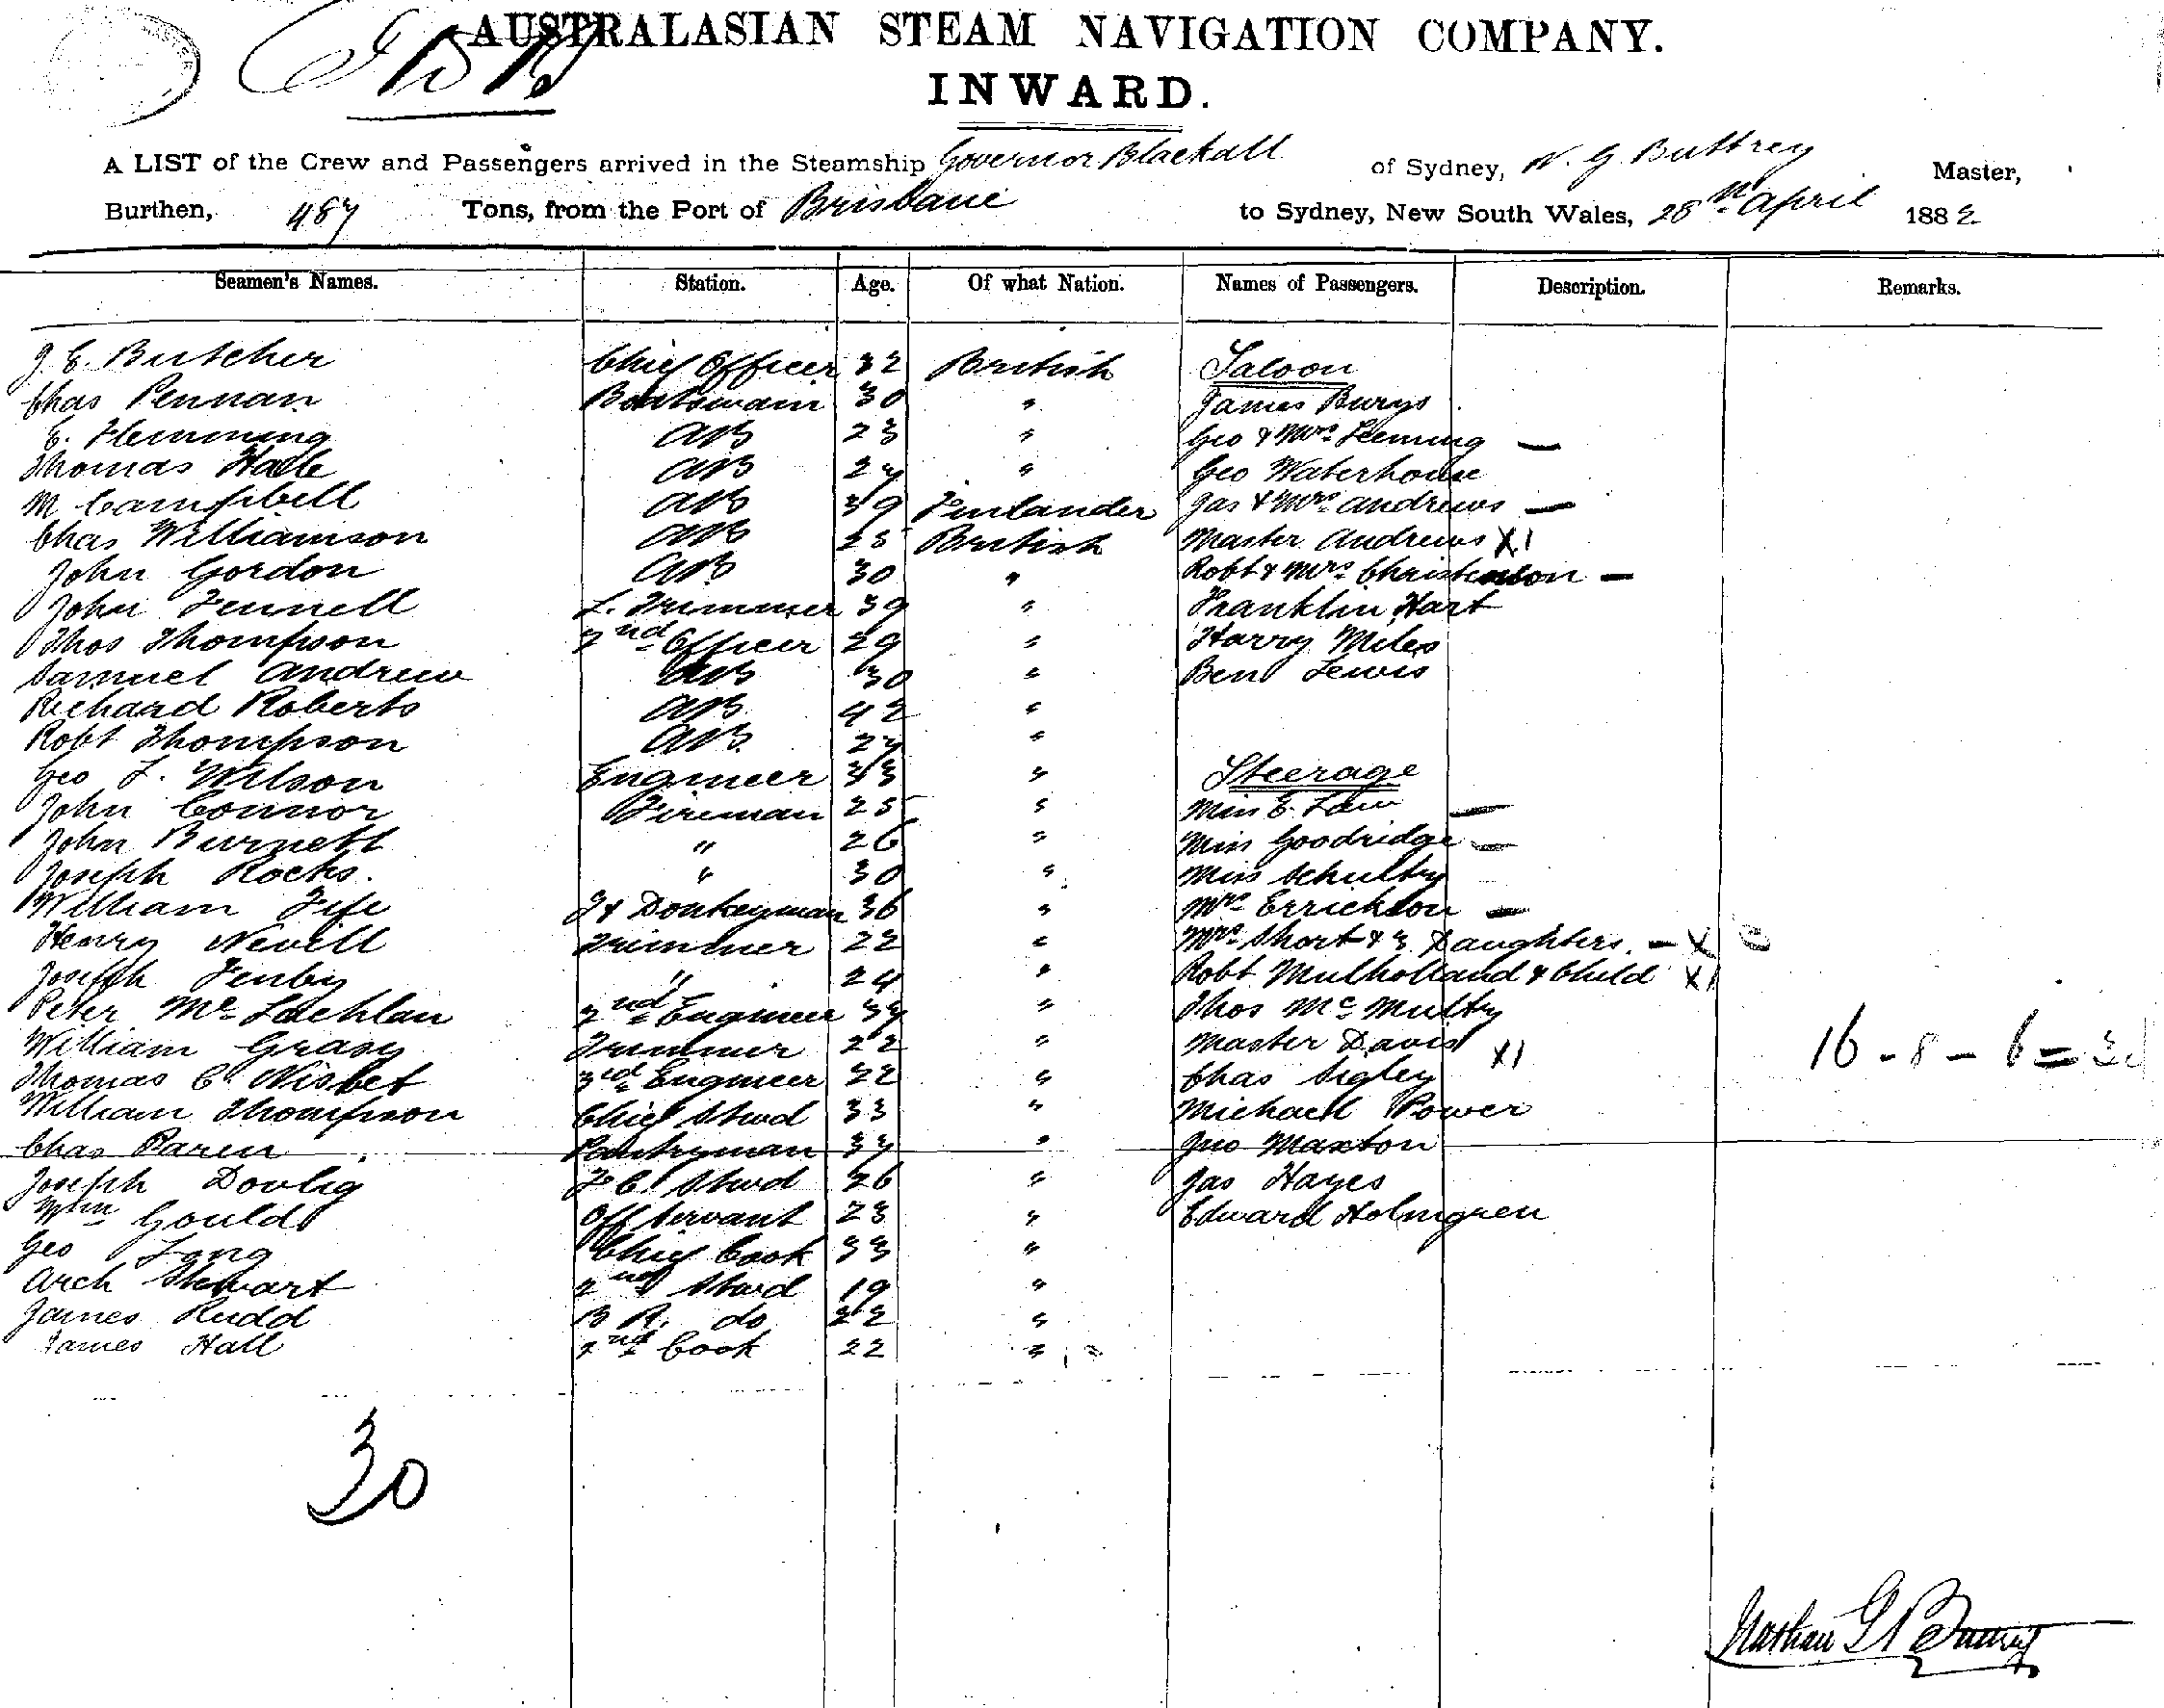 AUSTRALASIAN STEAM NAVIGATION COMPANY.
INWARD.
A LIST of the Crew and Passengers arrived in the Steamship Governor Blackall of Sydney, N. G. Buttrey Master,
Burthen, 487 Tons, from the Port of Brisbane to Sydney, New South Wales, 28th April 1882
Seamen's Names. Station. Age. Of what Nation. Names of Passengers. Description. Remarks.
J. E. Butcher Chief Officer 32 British Saloon
Chas Pennan Boatswain 30 " James Burys
E. Flemming AB 23 " Geo & Mrs Leeming —
Thomas Hall AB 24 " Geo Waterhouse
M Campbell AB 39 Finlander Jas & Mrs Andrews —
Chas Williamson AB 25 British Master Andrews X1
John Gordon AB 30 " Robt & Mrs Christenson —
John Fennell L. Trimmer 39 " Franklin Hart
Thos Thompson 2nd Officer 29 " Harry Miles
Samuel Andrew AB 30 " Ben Lewis
Richard Roberts AB 42 "
Robt Thompson AB 27 "
Geo L. Wilson Engineer 43 " Steerage
John Connor Fireman 25 " Miss E. Law —
John Burnett " 26 " Miss Goodridge —
Joseph Rocks. " 30 " Miss Schultz
William Fife F & Donkeyman 36 " Mrs Errickson —
Henry Nevill Trimmer 22 " Mrs Short & 3 Daughters. — X
Joseph Fenby " 24 " Robt Mulholland & Child X1
Peter Mc Lachlan 2nd Engineer 39 " Thos Mc Multy
William Grasy Trimmer 22 " Master Davis X1
16 - 8 - 6 = 30
Thomas C. Nisbet 3rd Engineer 22 " Chas Sigley
William Thompson Chief Stwd 33 " Michael Power
Chas Paren Pantryman 37 " Jno Maxton
Joseph Dovlig F C. Stwd 26 " Jas Hayes
Wm Gould Off Servant 23 " Edward Holmgren
Geo Lang Chief Cook 33 "
Arch Stewart 2nd Stwd 19 "
James Rudd B R. do 22 "
James Hall 2nd Cook 22 "
30
Nathan G Buttrey